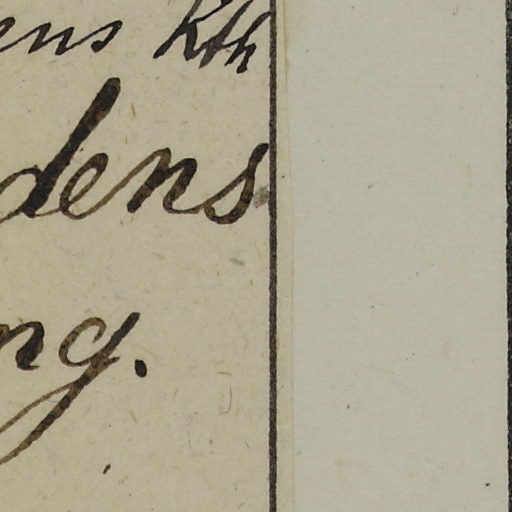 ens Kth
dens
ng.